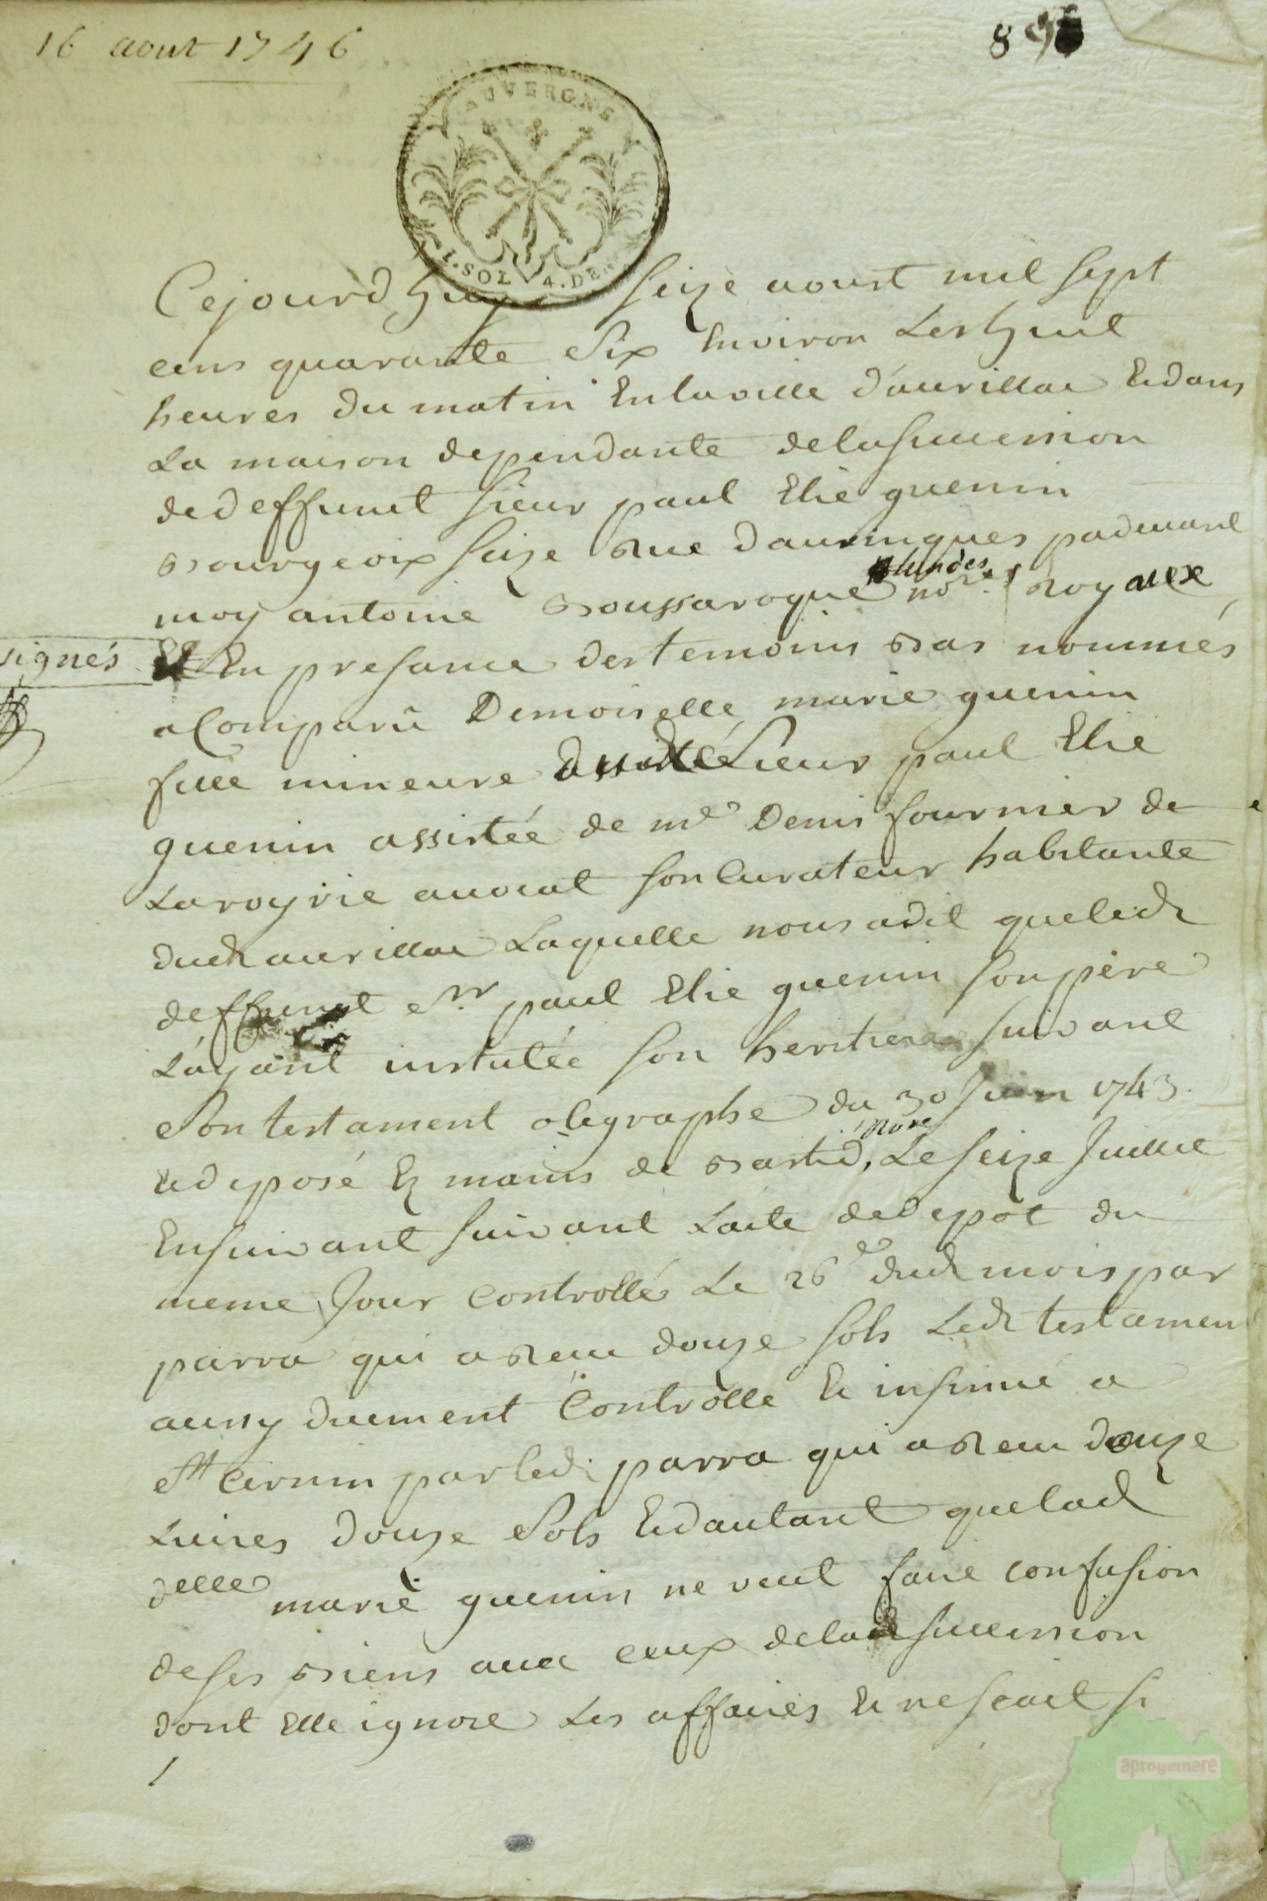 16 aout 1746
8
AUVERGNE
1.SOL 4.DE.
Cejourd'huy seize aoust mil sept
cens quarante six Environ Les huit
heures du matin En la ville d'aurillac Et dans
La maison dependante de la succession
de deffunct sieur paul Elie guenin
Bourgeoix seize Rue daurinques pardevant
moy antoine Boussaroque nore Royaux
signés
Et En presance des temoins Bas nommés
a Comparu Demoiselle marie guenin
fille mineure Sieur paul Elie
guenin assistée de me Denis fournier de
Laroyrie avocat son Curateur habitante
dud aurillac Laquelle nous a dit que led
deffunct Sr paul Elie guenin son père
L'ayant instutée son heritiere suivant
Son testament olegraphe du 30 Juin 1743.
nore
Et deposé Ez mains de Bastid, Le seize Juillet
Ensuivant suivant L'acte de depot du
meme Jour Controllé Le 26e dud mois par
parra qui a Receu douze sols Led testament
aussy duement Controllé Et insinué a
St Cirnin par led parra qui a Receu douze
Livres douze Sols Et dautant que lad
delle marie guenin ne veut faire confusion
de ses Biens avec ceux de lad succession
dont Elle ignore Les affaires Et ne scait si
aprogemere